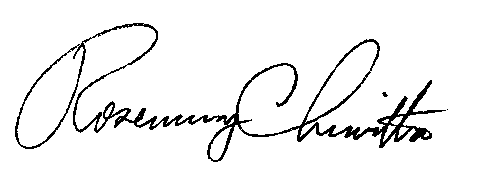 Rosemary Chiavetta